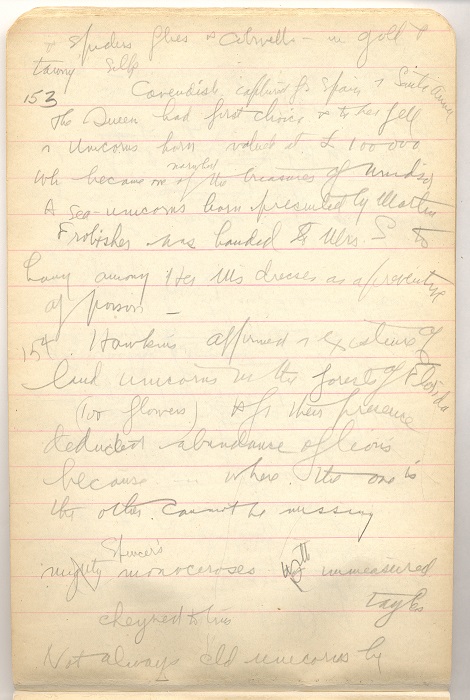 & Spiders flies & cobwebs – in gold &
tawny silk
153 Cavendish captured fr Spain a Santa Anna
The Queen had first choice & to her fell
a Unicorns horn valued at £ 100 000
wh became one of the treasures of Windsor
marvels
A sea-unicorns horn presented by Martin
Frobisher was handed to Mrs. S to
hang among Her Ms dresses as a preventive
of poison –
154. Hawkins affirmed existence of
land unicorns in the forests of Florida
(Too flowers) & fr their presence
deducted abundance of lions
because where the one is
the other cannot be missing
Spencer's
mighty monoceroses with unmeasured
tayles
Not always did unicorns by